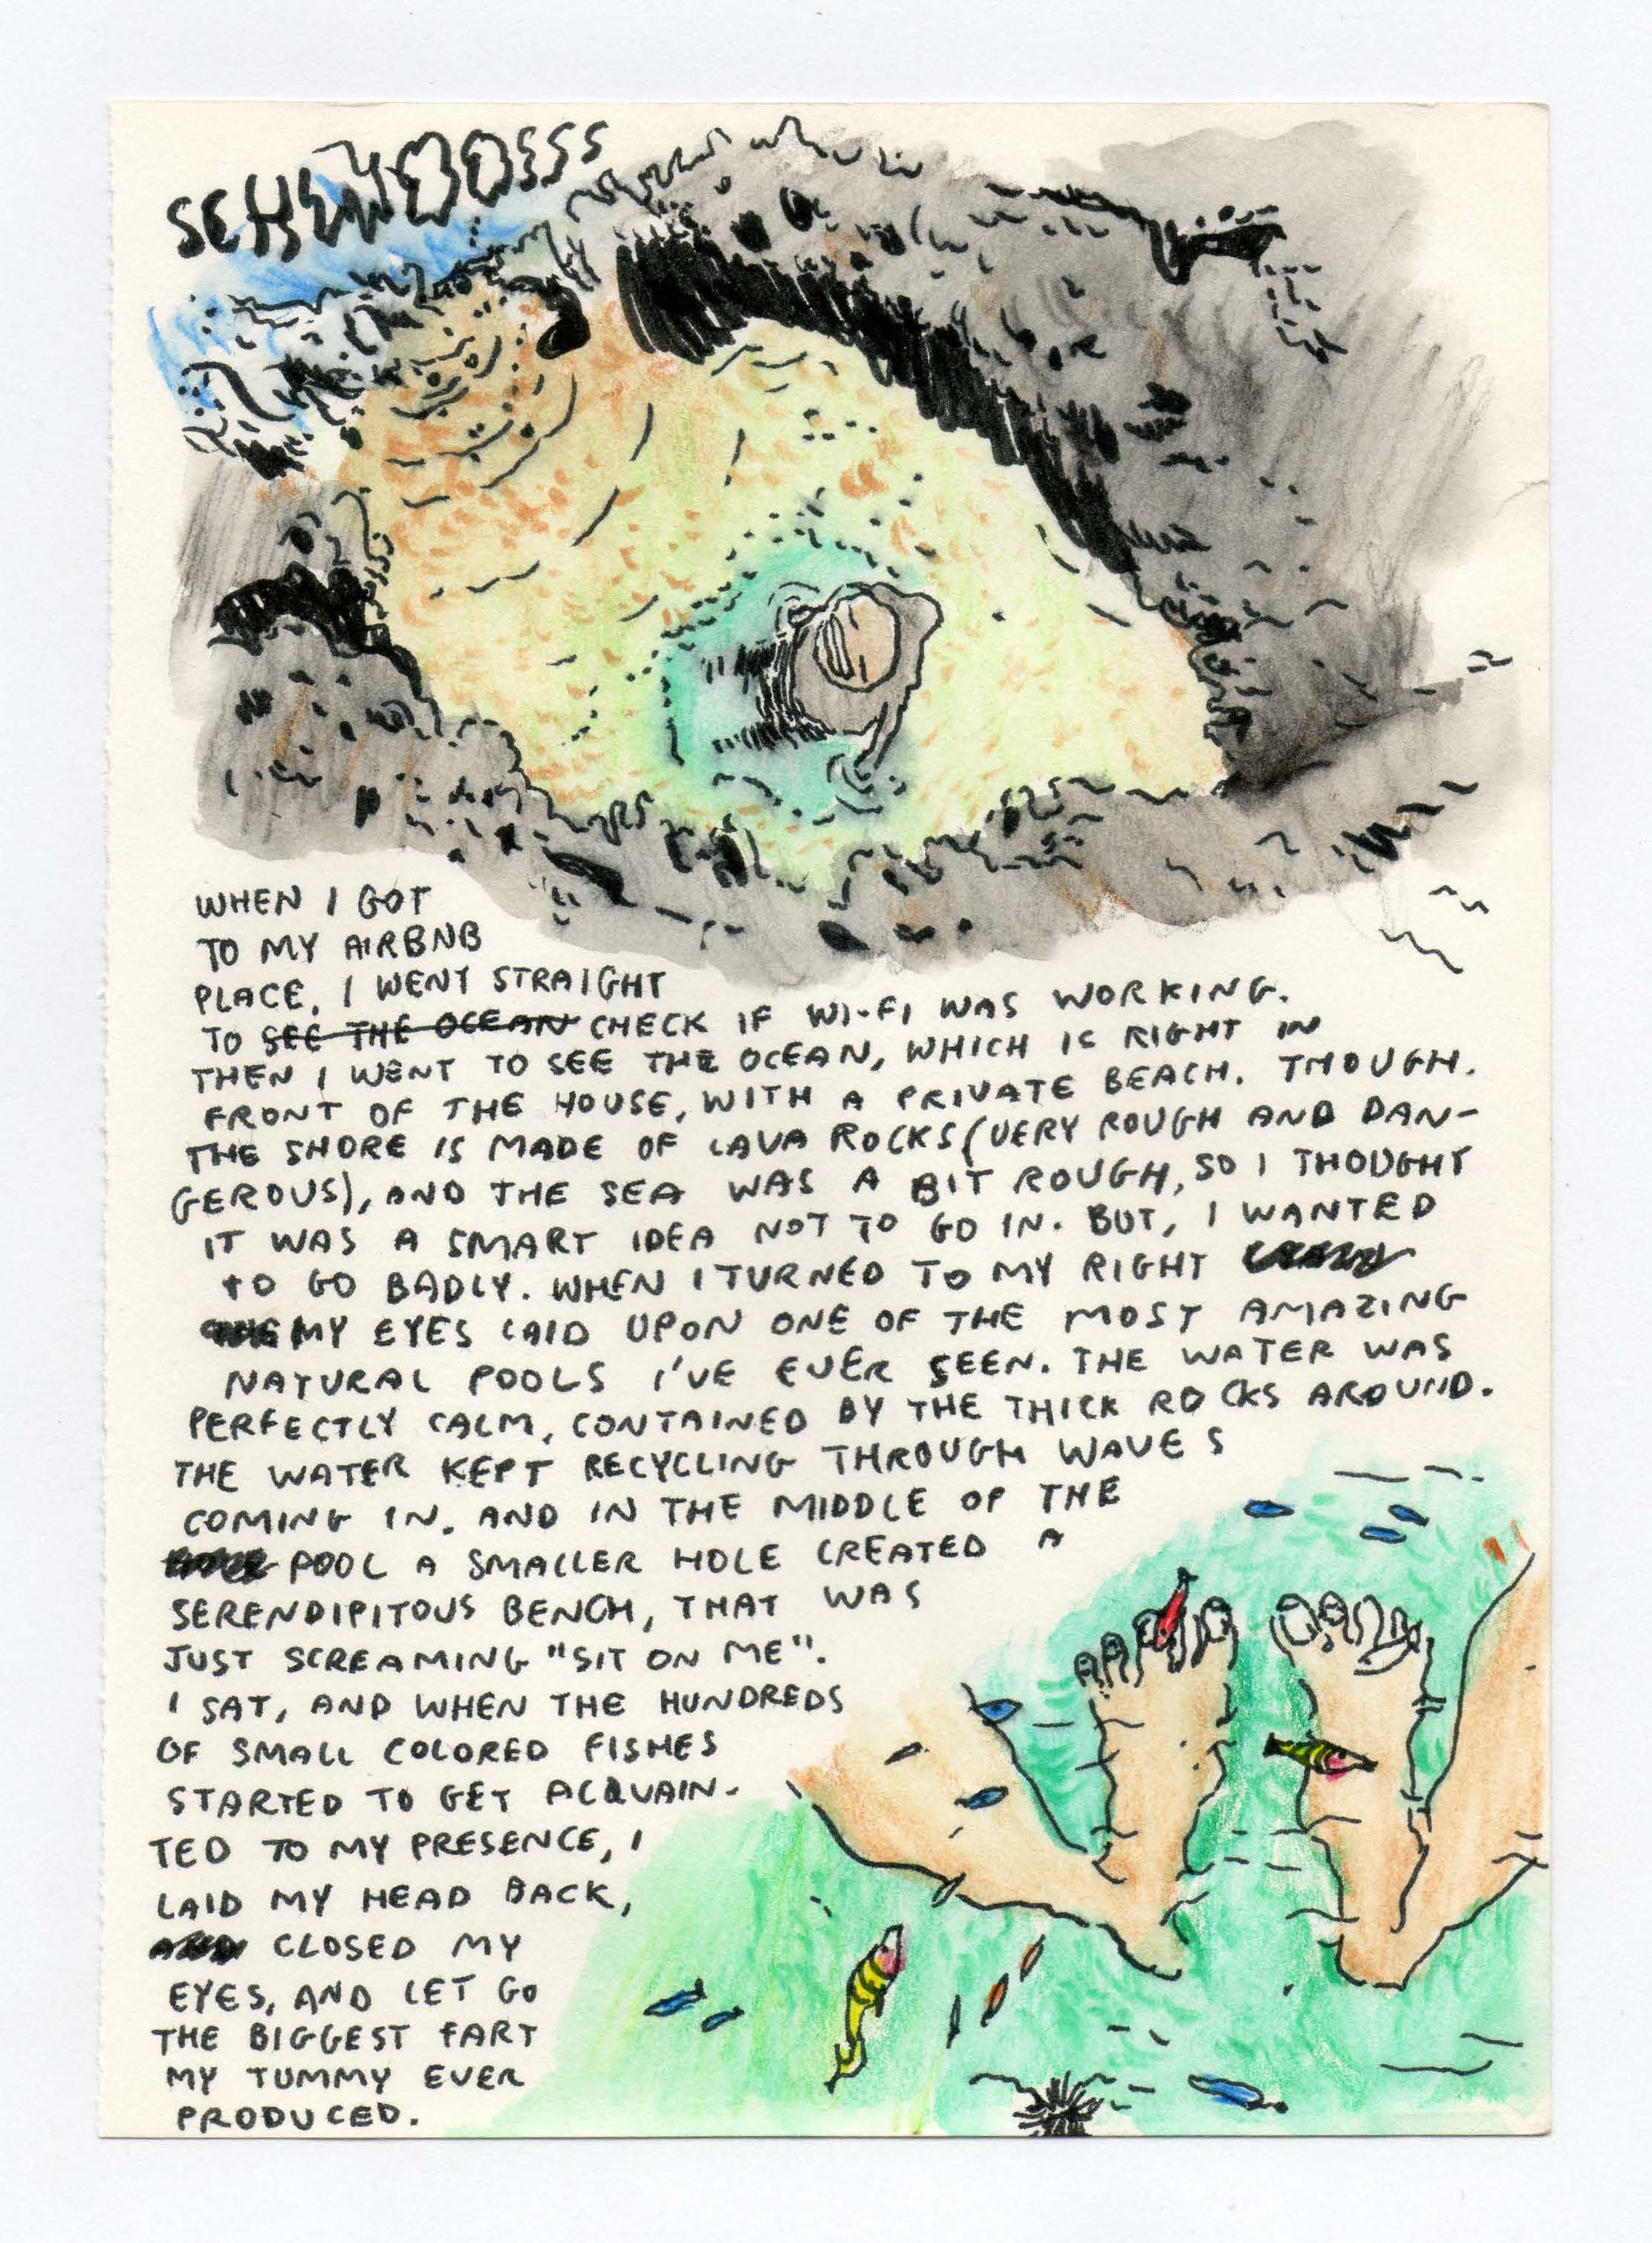 WHEN I GOT
TO MY AIRBNB
PLACE, I WENT STRAIGHT
TO SEE THE OCEAN CHECK IF WI-FI WAS WORKING.
THEN I WENT TO SEE THE OCEAN, WHICH IS RIGHT IN
FRONT OF THE HOUSE, WITH A PRIVATE BEACH. THOUGH.
THE SHORE IS MADE OF LAVA ROCKS (VERY ROUGH AND DAN-
GEROUS), AND THE SEA WAS A BIT ROUGH, SO I THOUGHT
IT WAS A SMART IDEA NOT TO GO IN. BUT, I WANTED
TO GO BADLY. WHEN I TURNED TO MY RIGHT
MY EYES LAID UPON ONE OF THE MOST AMAZING
NATURAL POOLS I'VE EVER SEEN. THE WATER WAS
PERFECTLY CALM, CONTAINED BY THE THICK ROCKS AROUND.
THE WATER KEPT RECYCLING THROUGH WAVES
COMING IN. AND IN THE MIDDLE OF THE
POOL A SMALLER HOLE CREATED A
SERENDIPITOUS BENCH, THAT WAS
JUST SCREAMING "SIT ON ME".
I SAT, AND WHEN THE HUNDREDS
OF SMALL COLORED FISHES
STARTED TO GET ACQUAIN-
TED TO MY PRESENCE, I
LAID MY HEAD BACK,
CLOSED MY
EYES, AND LET GO
THE BIGGEST FART
MY TUMMY EVER
PRODUCED.